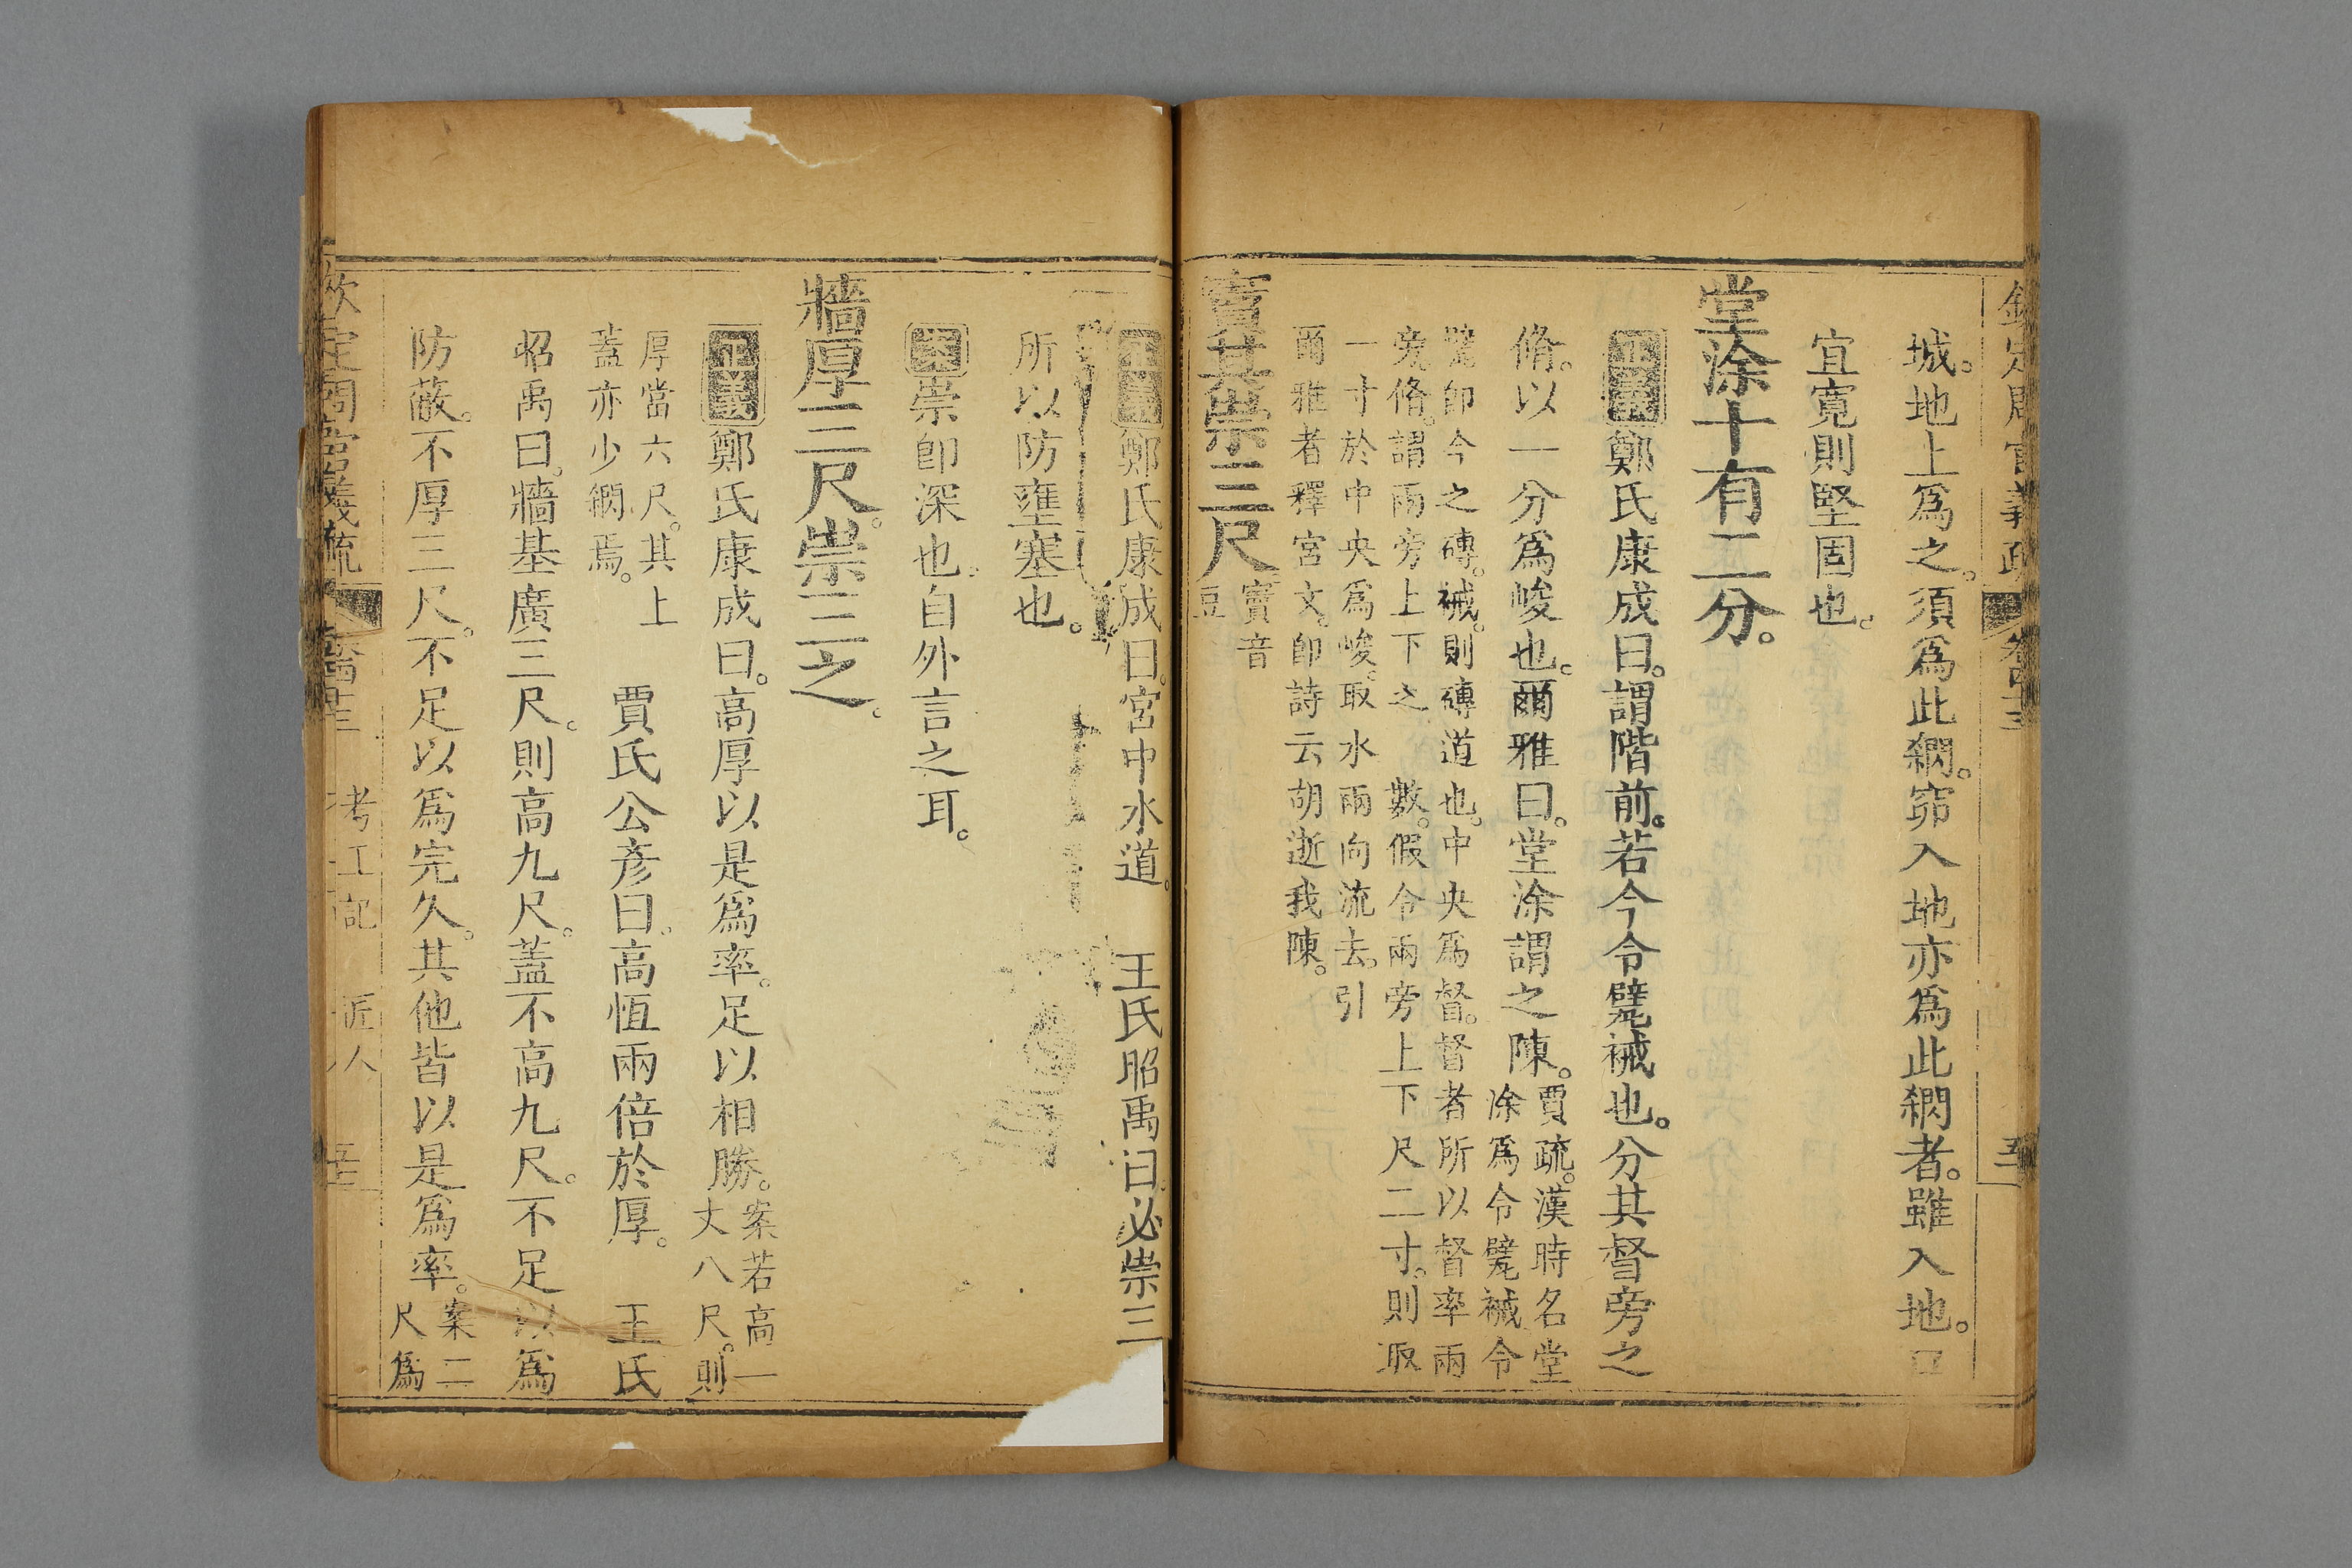 城。地上爲之。須爲此網。窌入地亦爲此網者。雖入地。口
宜寛則堅固也。
堂涂十有二分。
正義鄭氏康成曰。謂階前。若今令甓祴也。分其督旁之
脩。以一分爲峻也。爾雅曰。堂涂謂之陳。
賈疏。漢時名堂
涂爲令甓祴令
甓卽今之磚。祴。則磚道也。中央爲督。督者所以督率兩
旁。脩。謂兩旁上下之數。假令兩旁上下尺二寸。則取
一寸於中央爲峻。取水兩向流去。引
爾雅者釋宮文。卽詩云胡逝我陳。
竇其崇三尺
竇音
豆
正義鄭氏康成曰。宮中水道。王氏昭禹曰必崇三
所以防壅塞也。
案崇卽深也。自外言之耳。
牆厚三尺。崇三之。
正義鄭氏康成曰。高厚以是爲率。足以相勝。
案若高一
丈八尺。則
厚當六尺。其上
蓋亦少網焉。
賈氏公彥曰。高恆兩倍於厚。王氏
昭禹曰。牆基廣三尺。則高九尺。蓋不高九尺。不足以爲
防蔽。不厚三尺。不足以爲完久。其他皆以是爲率。
案二
尺爲
欽定周官義疏 考工記 匠人